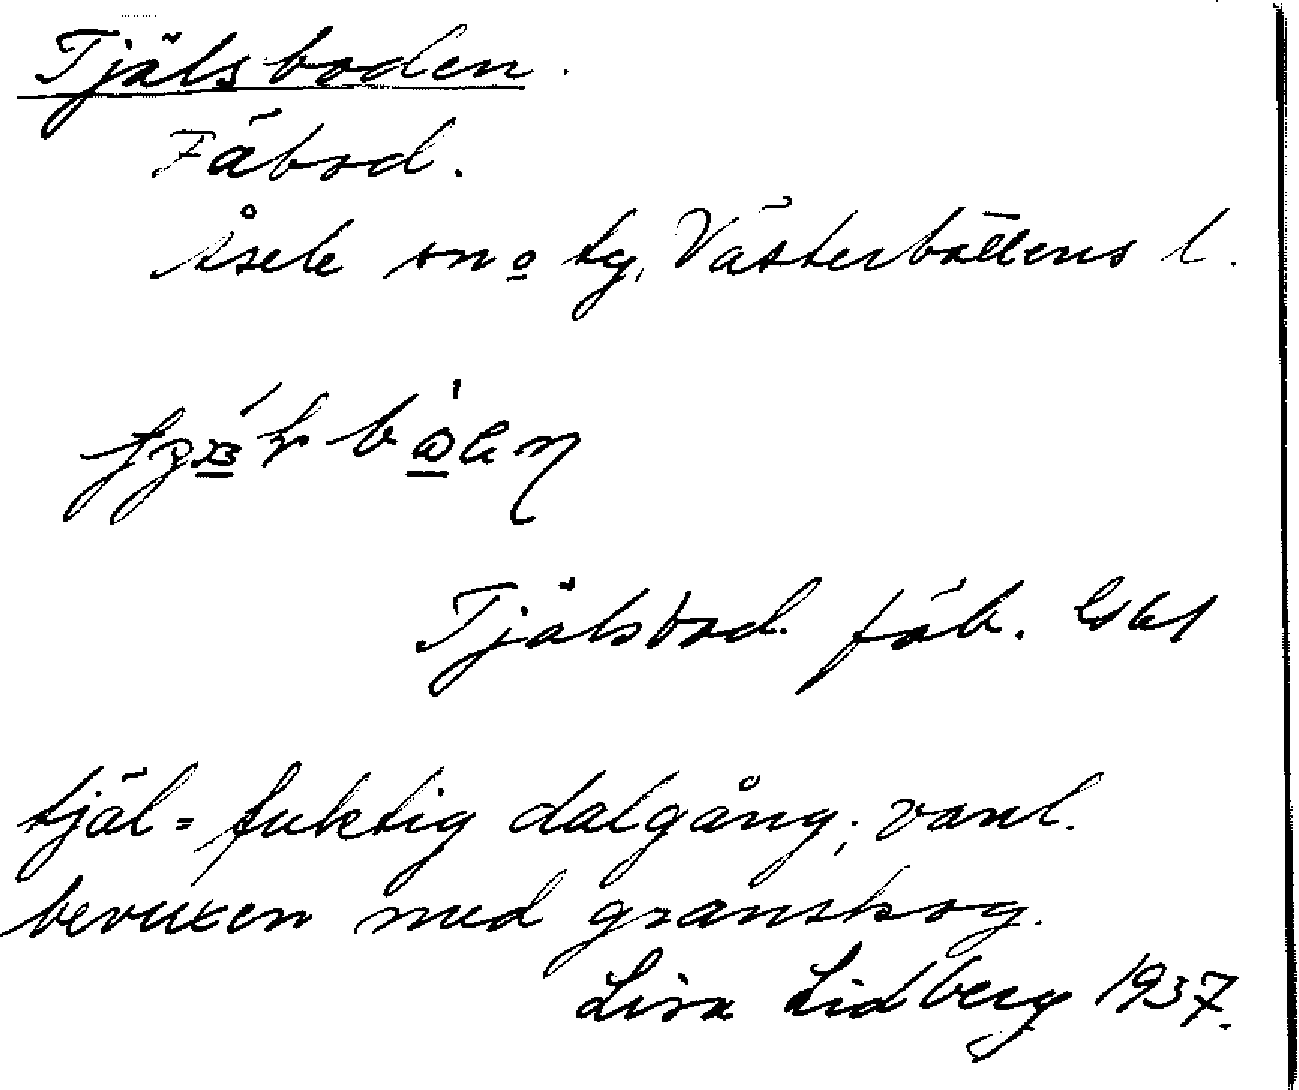 Tjälsboden.
Fäbod.
Åsele sn o tg, Västerbottens l.
Tjälsbod. fäb.
tjäl = fuktig dalgång, vanl.
bevuxen med granskog.
Lisa Lidberg 1937.